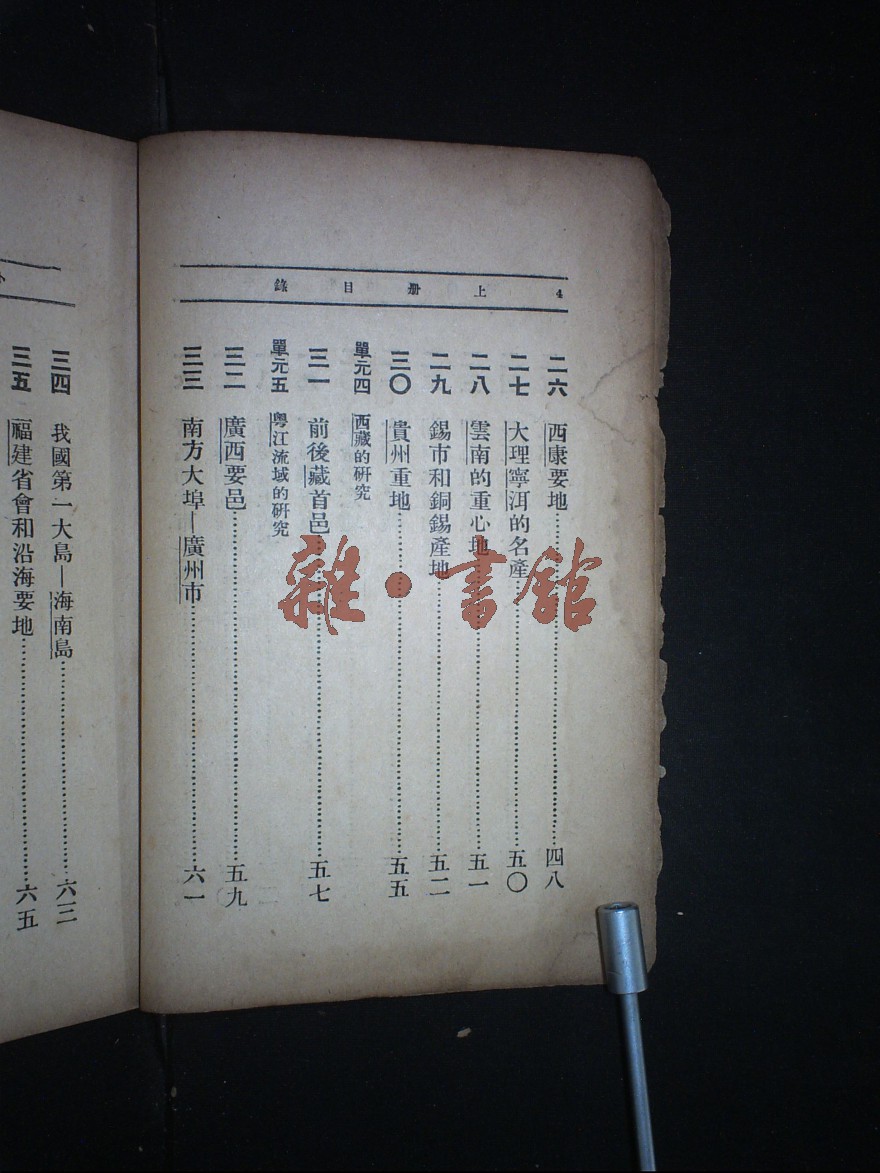 4 上册目錄
二六 西康要地……四八
二七 大理寧洱的名產……五〇
二八 雲南的重心地……五一
二九 錫市和銅錫產地……五二
三〇 貴州重地……五五
單元四 西藏的研究
三一 前後藏首邑……五七
單元五 粵江流域的研究
三二 廣西要邑……五九
三三 南方大埠—廣州市……六一
三四 我國第一大島—海南島……六三
三五 福建省會和沿海要地……六五
雜·書館